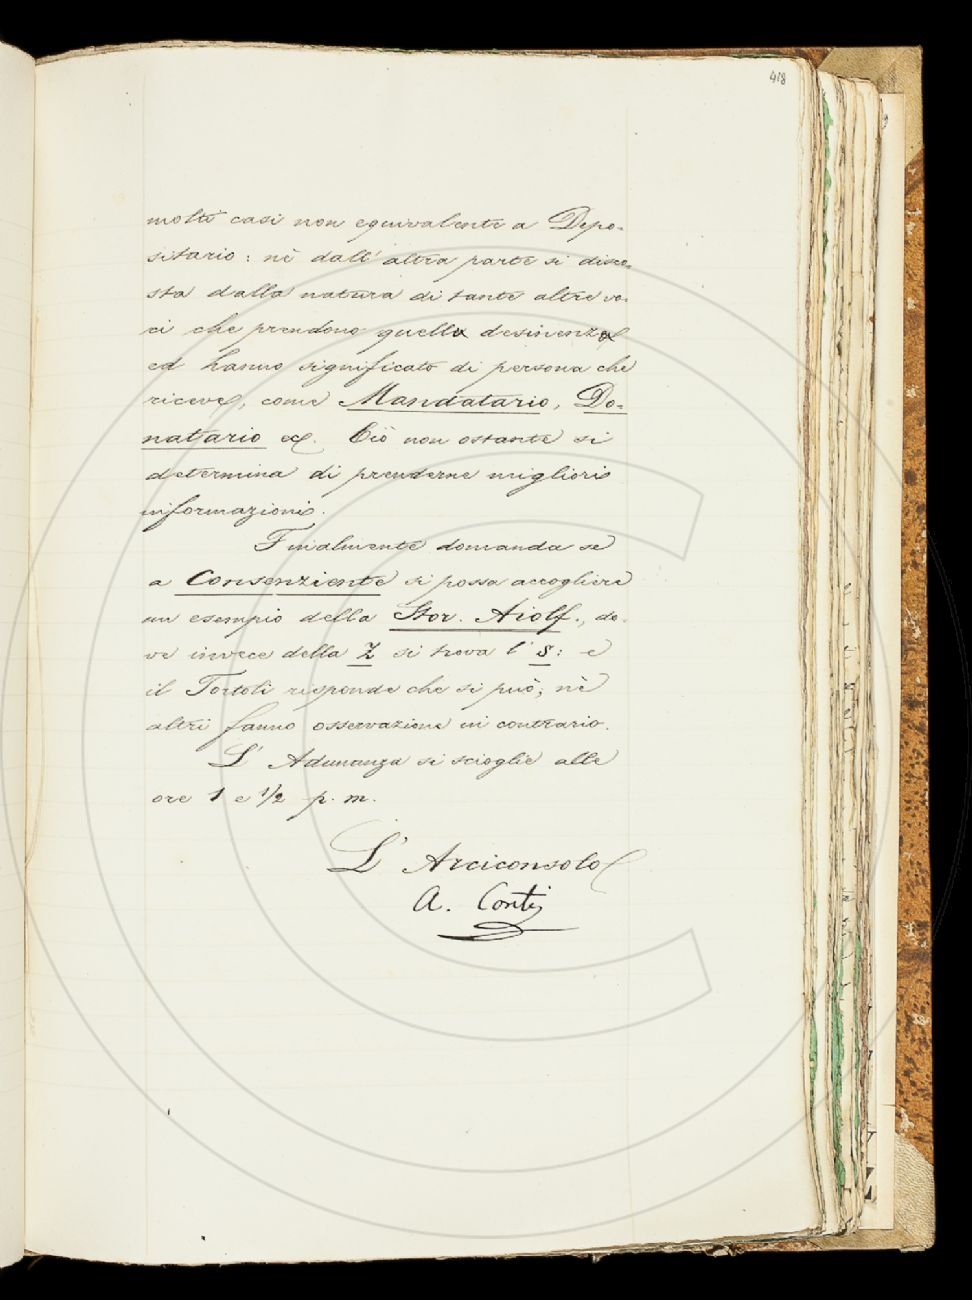 418
molti casi non equivalente a Depo-
sitario: nè dall'altra parte si disco-
sta dalla natura di tante altre vo-
ci che prendono quella desinenza
ed hanno significato di persona che
riceve, come Mandatario, Do-
natario ec. Ciò non ostante si
determina di prenderne migliori
informazioni.
Finalmente domanda se
a Consenziente si possa accogliere
un esempio della Stor. Aiolf., do-
ve invece della Z si trova l' s: e
il Tortoli risponde che si può; nè
altri fanno osservazione in contrario.
L' Adunanza si scioglie alle
ore 1 e 1/2 p. m.
L' Arciconsolo
A. Conti